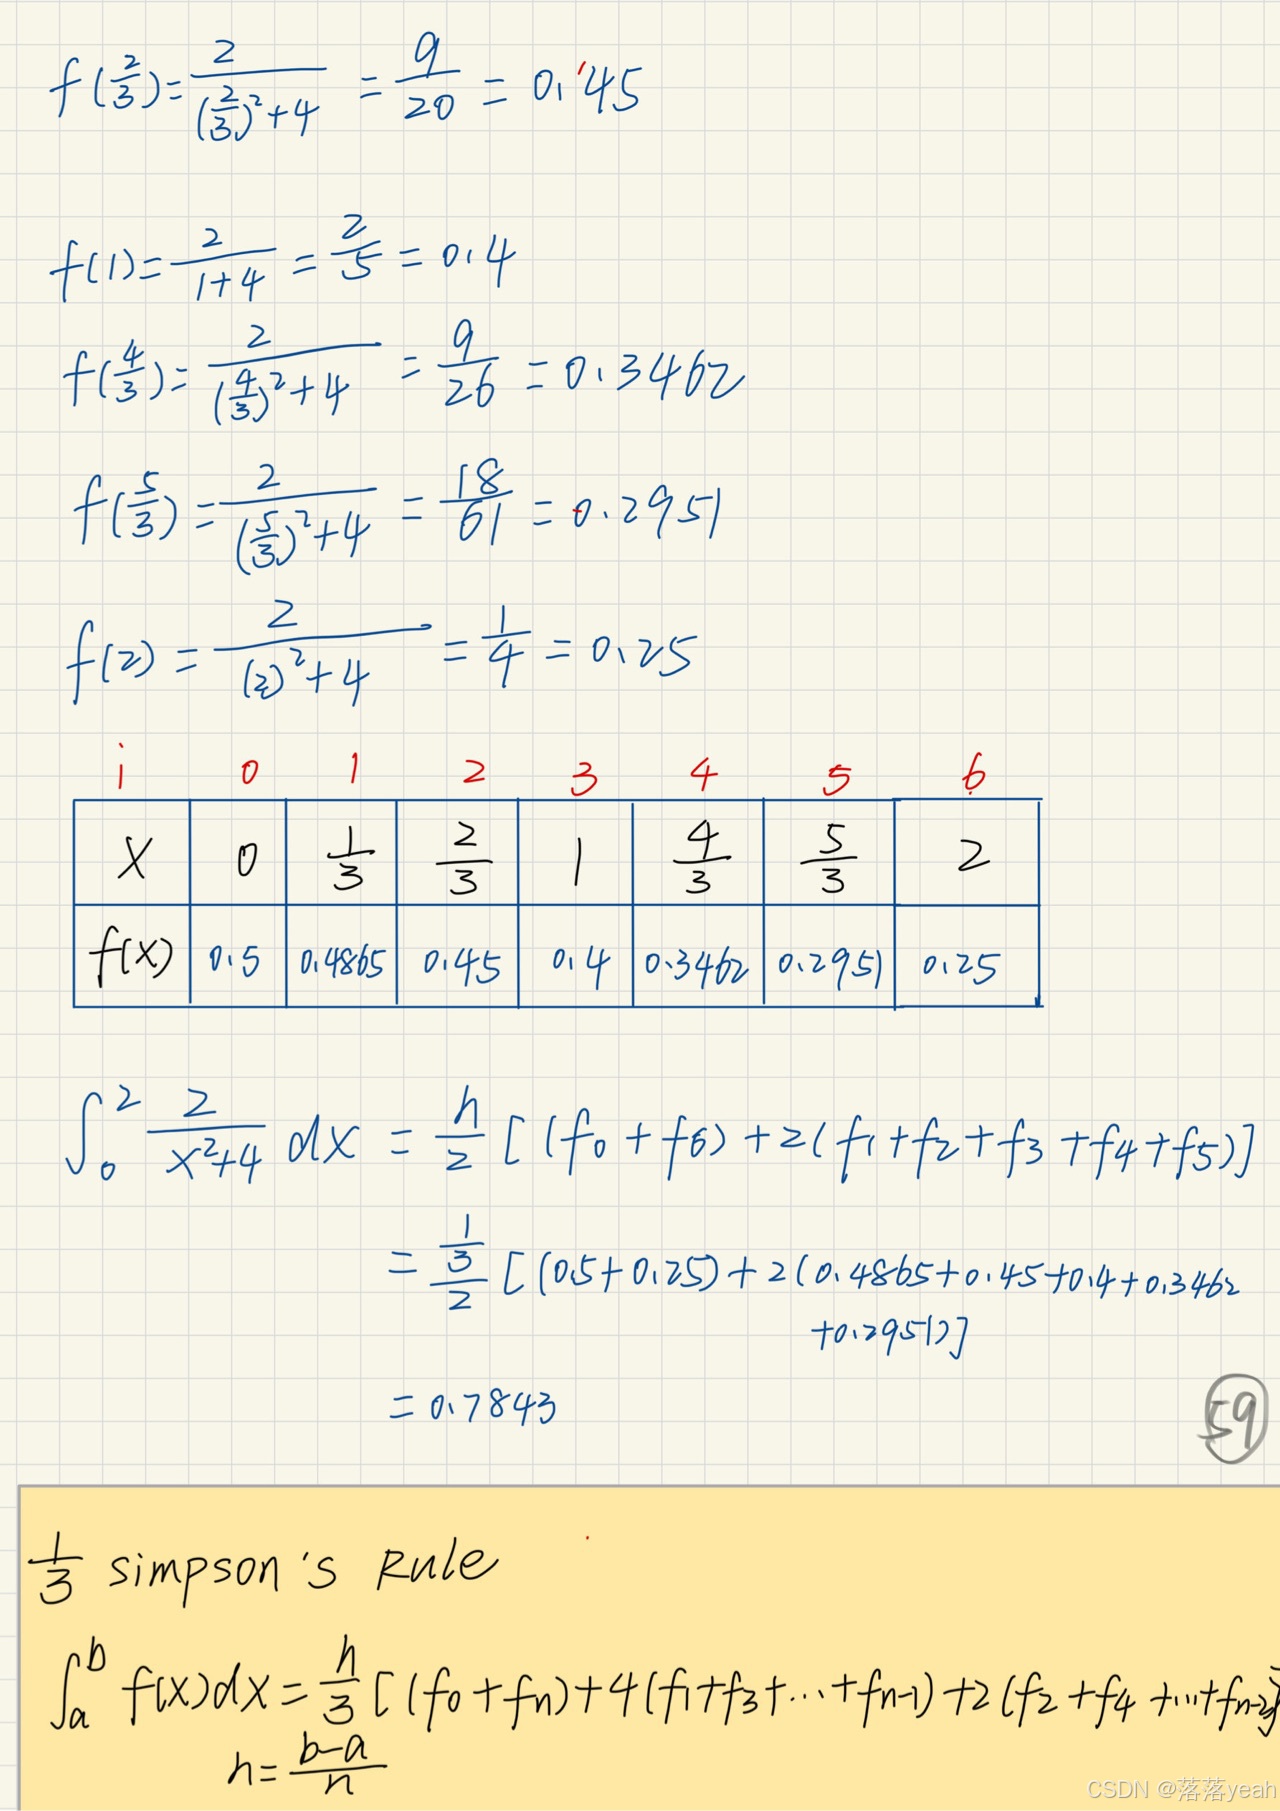 f(2/3) = 2/((2/3)²+4) = 9/20 = 0.45
f(1) = 2/(1+4) = 2/5 = 0.4
f(4/3) = 2/((4/3)²+4) = 9/26 = 0.3462
f(5/3) = 2/((5/3)²+4) = 18/61 = 0.2951
f(2) = 2/((2)²+4) = 1/4 = 0.25
i 0 1 2 3 4 5 6
X 0 1/3 2/3 1 4/3 5/3 2
f(x) 0.5 0.4865 0.45 0.4 0.3462 0.2951 0.25
∫₀² 2/(x²+4) dx = h/2 [(f₀+f₆)+2(f₁+f₂+f₃+f₄+f₅)]
= (1/3)/2 [(0.5+0.25)+2(0.4865+0.45+0.4+0.3462
+0.2951)]
= 0.7843
59
1/3 simpson's Rule
∫ₐᵇ f(x)dx = h/3 [(f₀+fₙ)+4(f₁+f₃+...+fₙ₋₁)+2(f₂+f₄+...+fₙ₋₂)]
h = (b-a)/n
CSDN @落落yeah